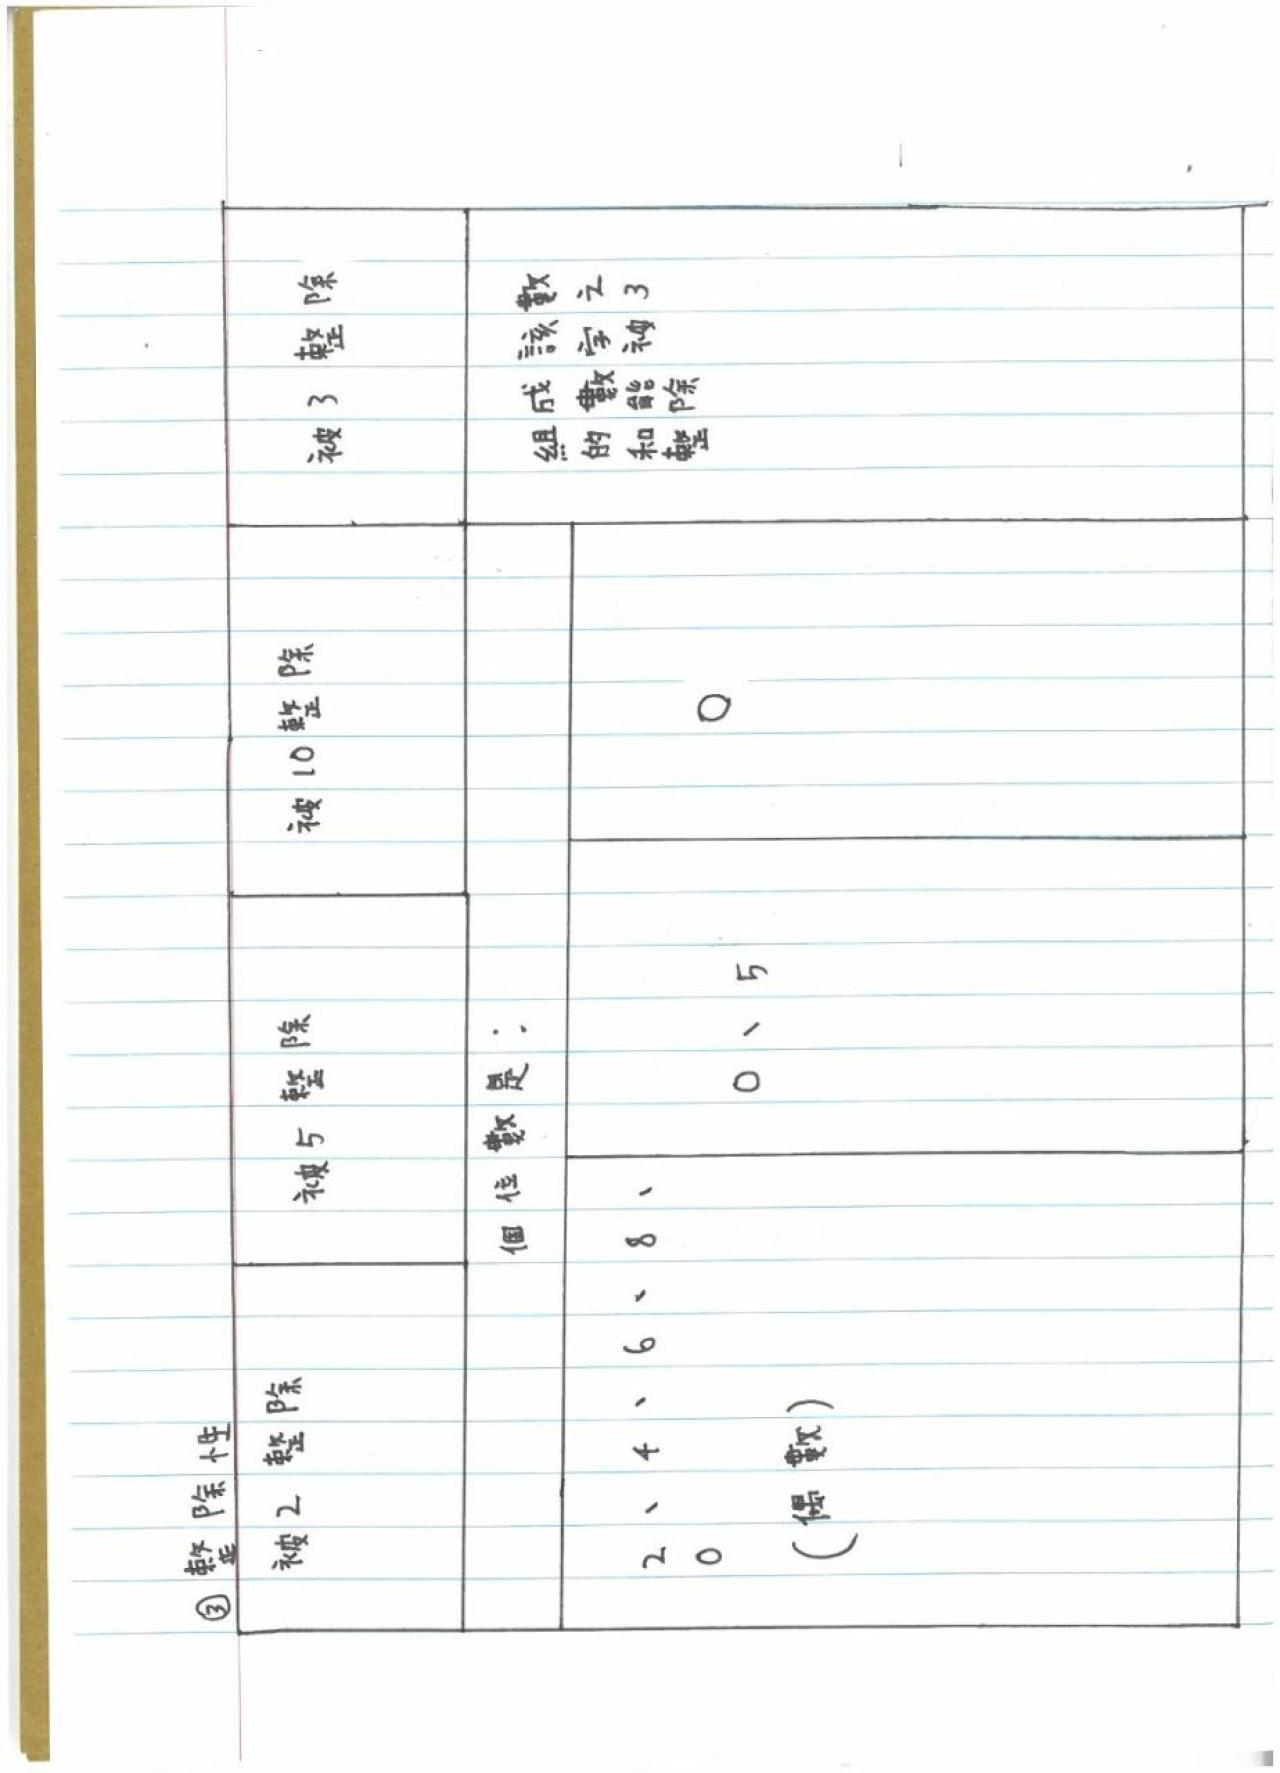 ③ 整除性
被2整除
被5整除
被10整除
被3整除
個位數是:
2、4、6、8、
0
(偶數)
0、5
0
組成該數
的數字之
和能被3
整除